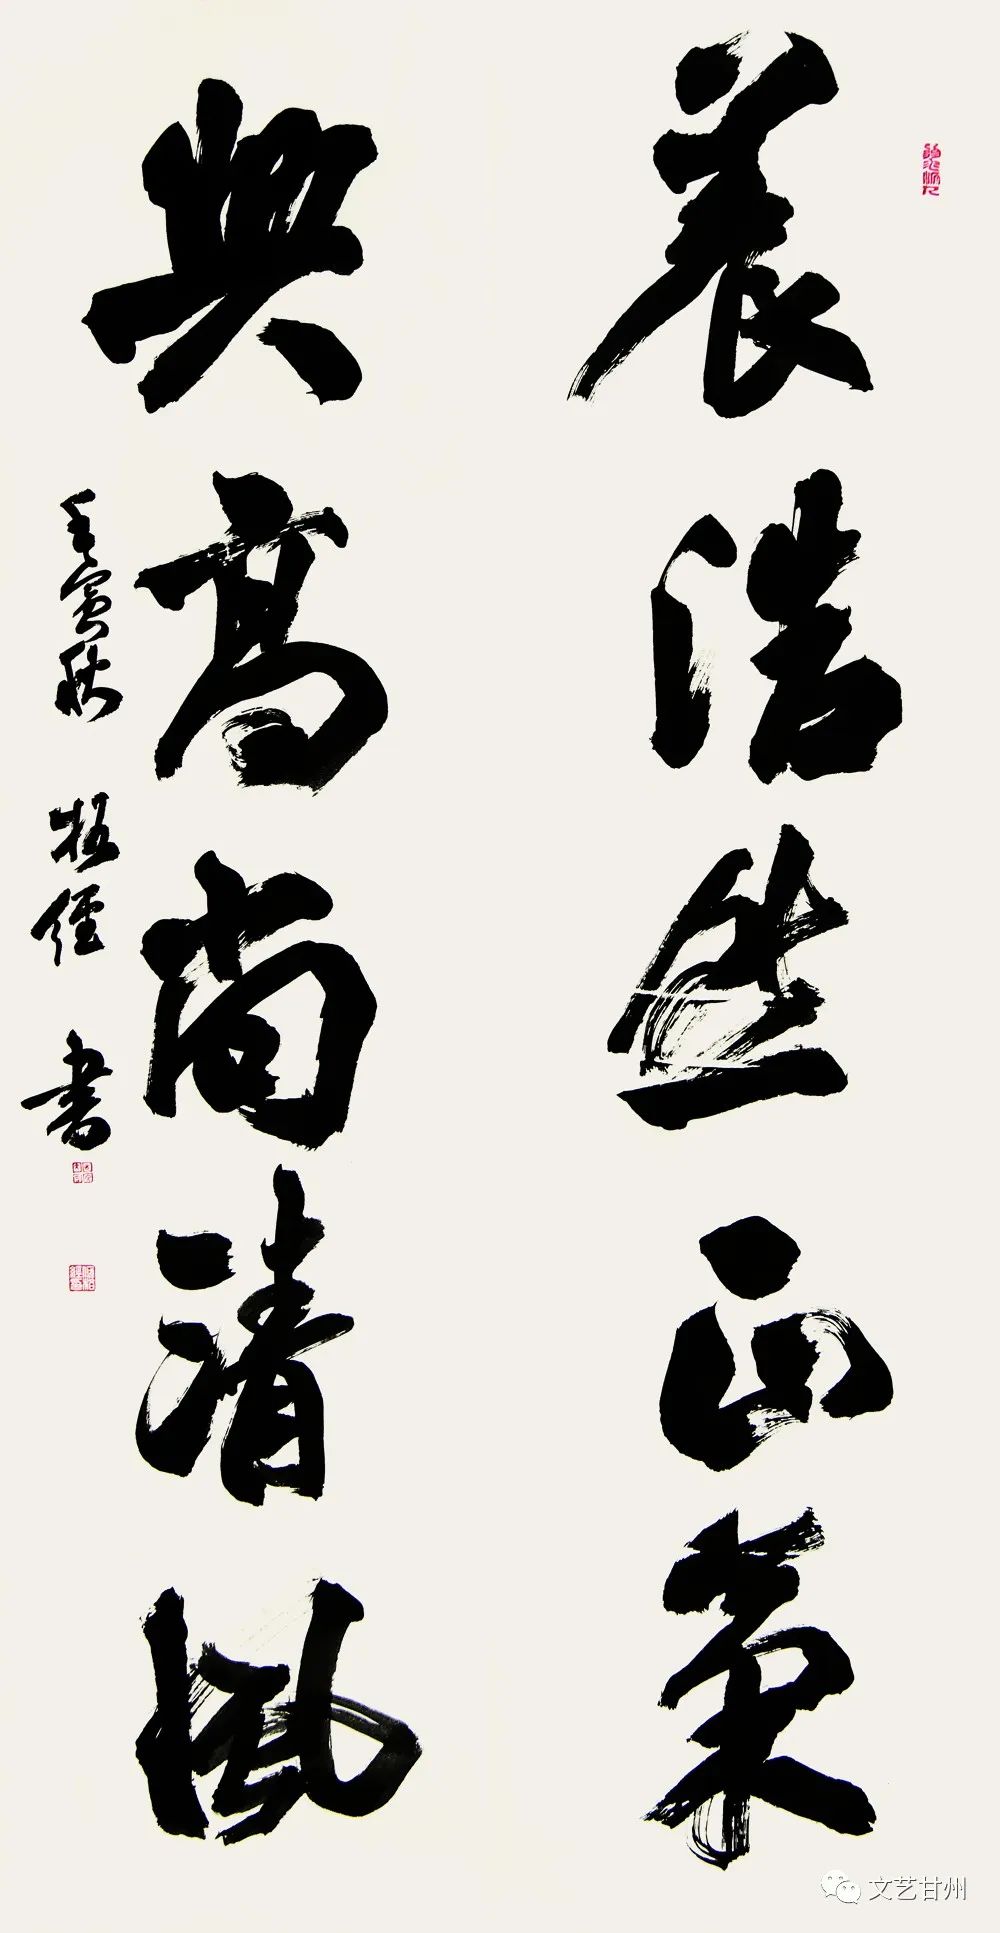 養浩然正氣
興高尚清風
壬寅秋 書
文艺甘州